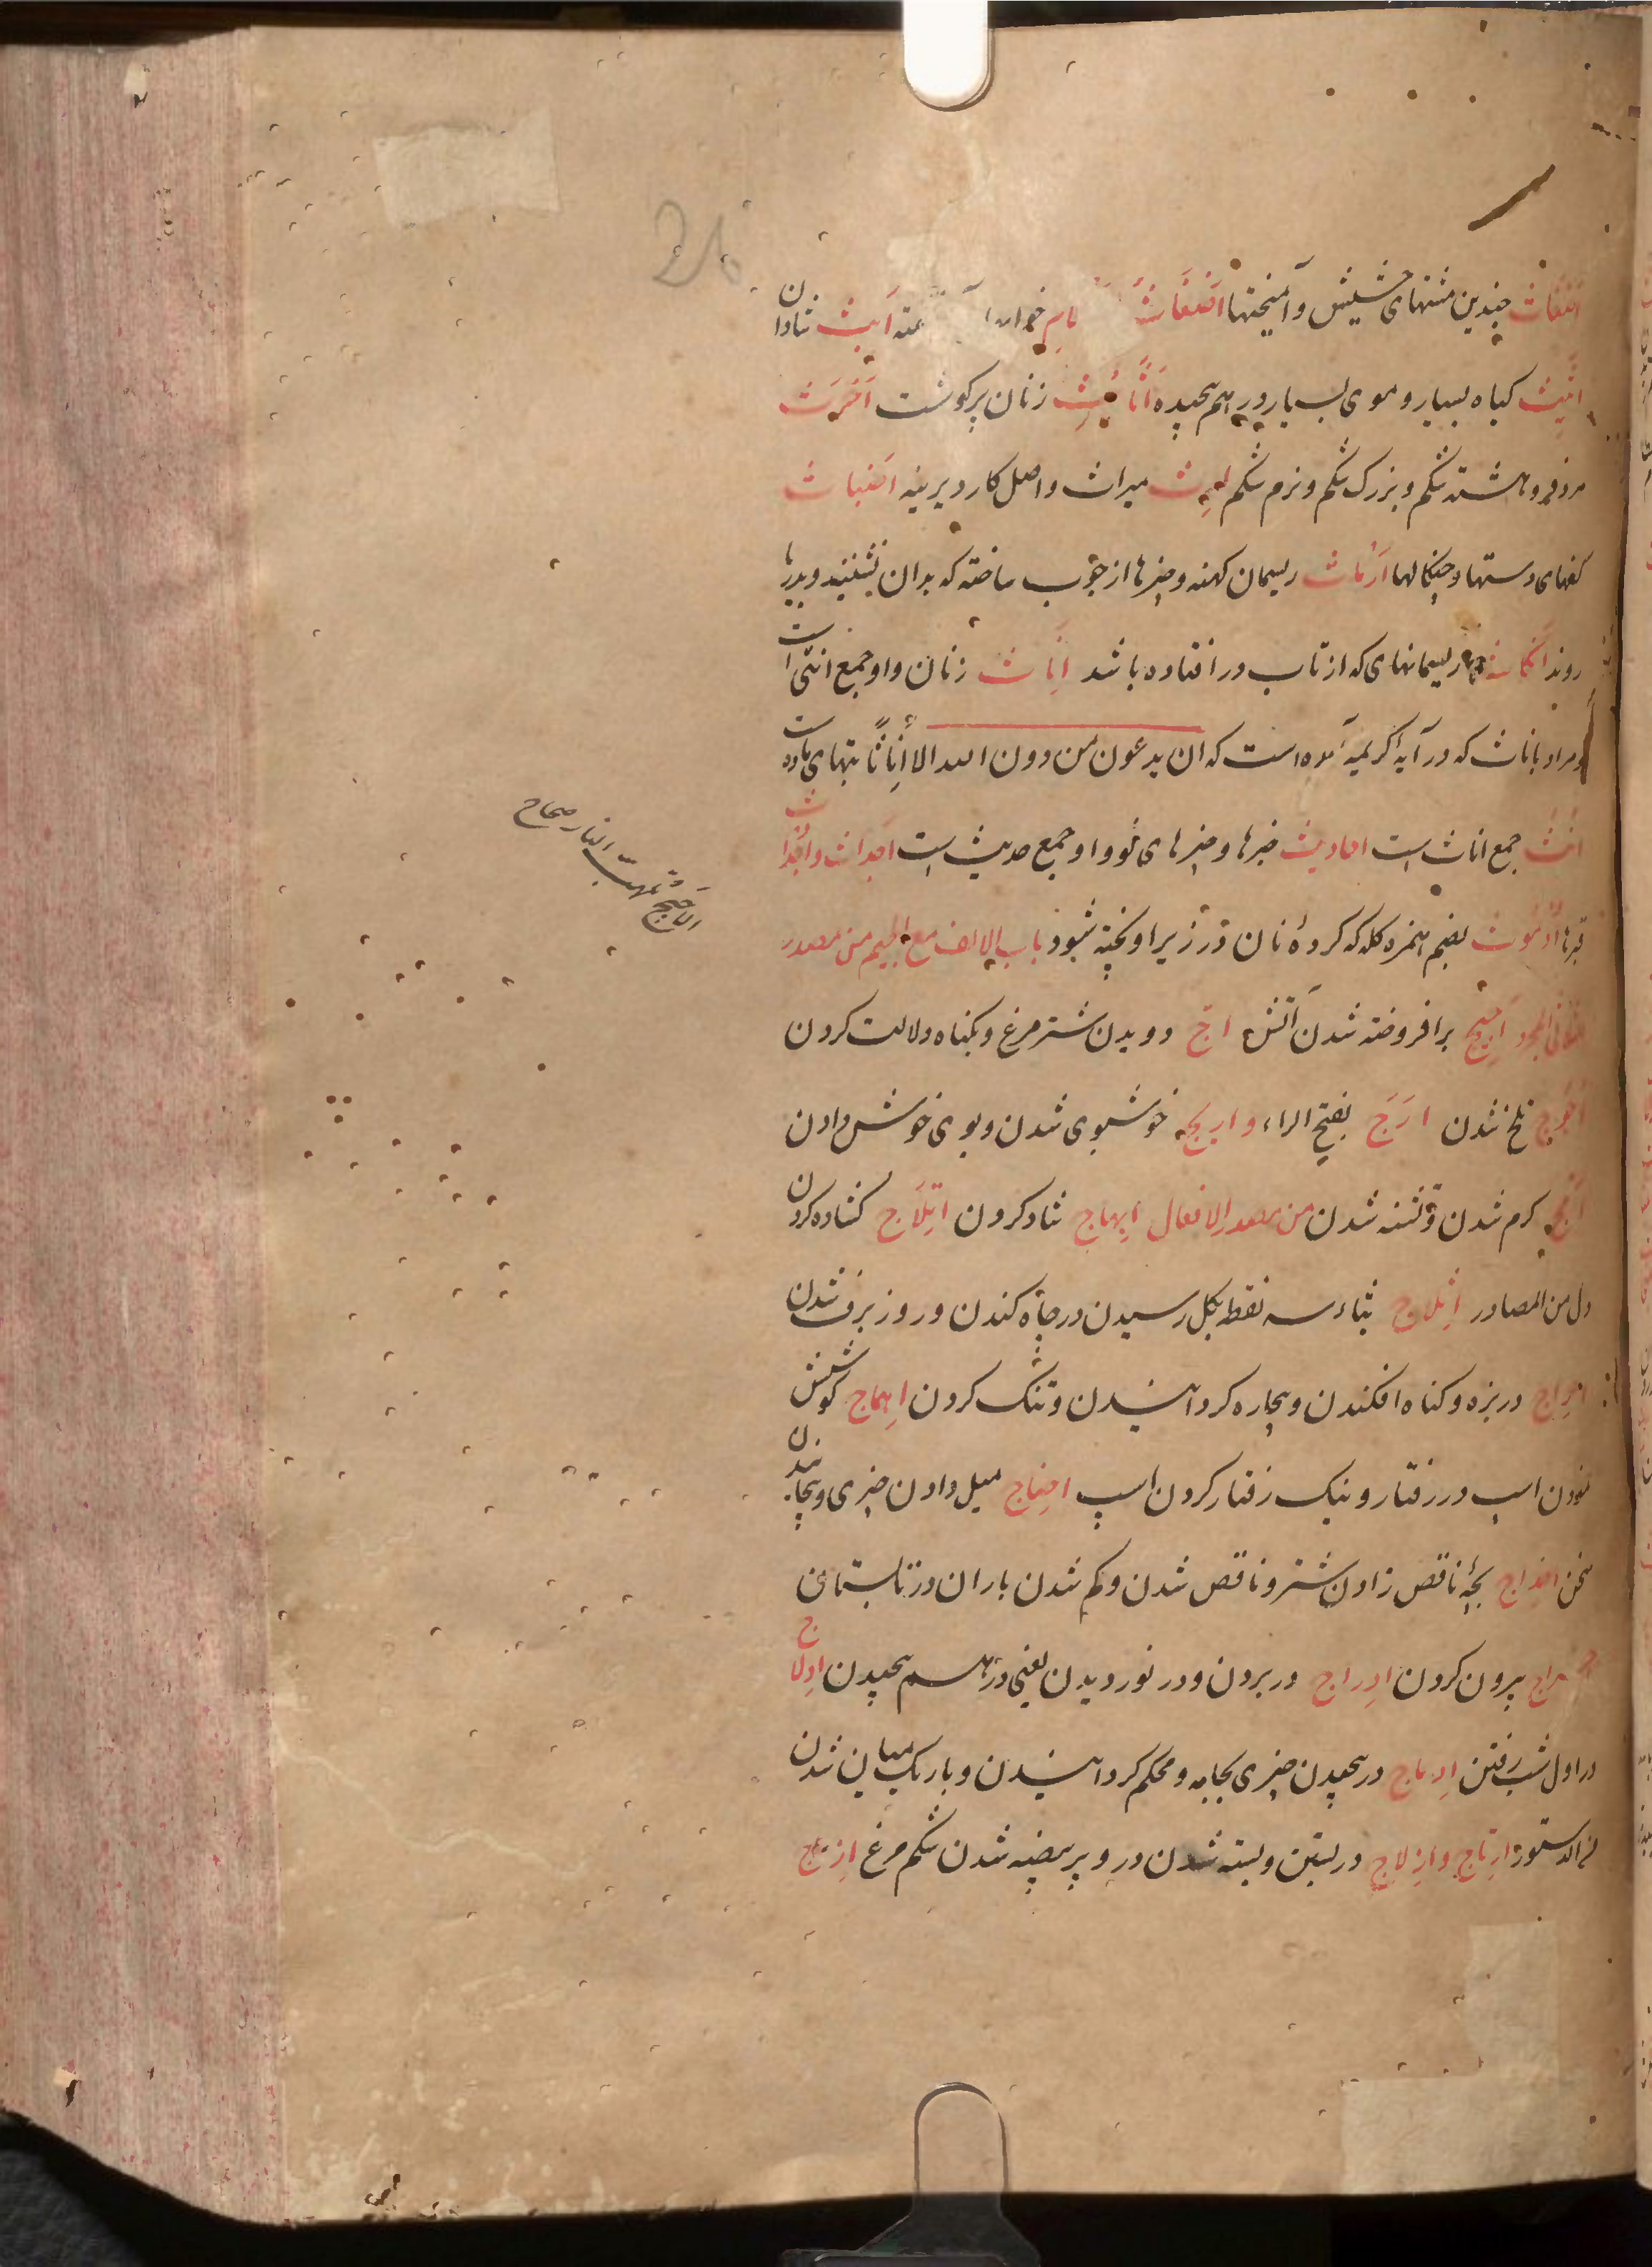 چندین مشتهای حشیش و آمیختها اضغاث
اثیث کیاه بسیار و موی بسیار درهم پیچیده اثایث زنان پرکوشت
مرد فروهشته شکم و بزرک شکم و نرم شکم ارث میراث و اصل کار دیرینه اضباث
کفهای دستها و چنکالها ارماث ریسمان کهنه و چیزها از چوب ساخته که بدان نشینند و بدریا
روند ریسمانهای که از تاب در افتاده باشد اناث زنان و او جمع انثی است
و مراد باناث که در آیهٔ کریمه آمده است که ان یدعون من دون الله الا إناثا بتهای ماده است
انث جمع اناث است احادیث خبرها و چیزهای نو و او جمع حدیث است اجداث و اجدا
بضم همزه کله که کردهٔ نان در زیر او پخته شود باب الالف مع الجیم من مصدر
الثلاثی المجرد اجیج برافروخته شدن آتش اج دویدن شترمرغ و بکناه دلالت کردن
اجوج تلخ شدن ارج بفتح الراء و اریجه خوشبوی شدن و بوی خوش دادن
کرم شدن و تشنه شدن من مصدر الافعال ابهاج شاد کردن اثلاج کشاده کردن
دل من المصادر اثلاج بثاء سه نقطه بکل رسیدن در چاه کندن و روز برف شدن
احراج در بزه و کناه افکندن و بیچاره کردانیدن و تنک کردن اهماج کوشش
نمودن اسپ در رفتار و نیک رفتار کردن اسپ احناج میل دادن چیزی و پیچانیدن
سخن اخداج بچهٔ ناقص زادن شتر و ناقص شدن و کم شدن باران در تابستان
اخراج بیرون کردن ادراج در بردن و در نوردیدن یعنی درهم پیچیدن ادلاج
در اول شب رفتن ادماج در پیچیدن چیزی بجامه و محکم کردانیدن و باریک میان شدن
من الدستور ارتاج و ازلاج در بستن و بسته شدن در و پر بیضه شدن شکم مرغ ازعاج
الاجیج تلهب النار صحاح